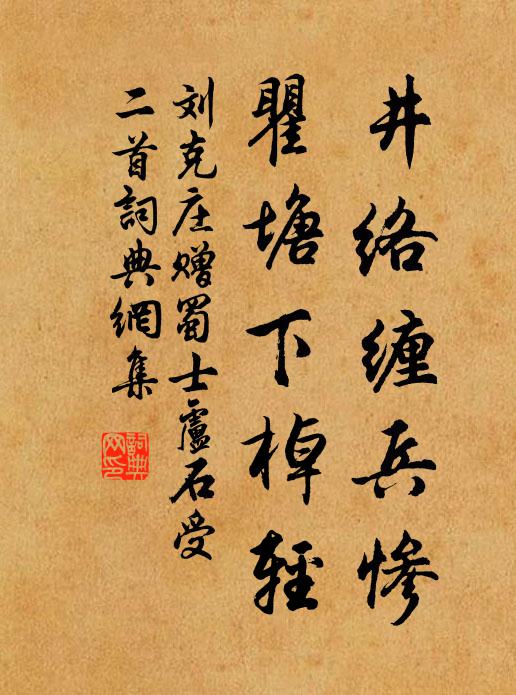 井络缠兵惨
瞿塘下棹轻
刘克庄赠蜀士卢石受
二首词典網集
詞典网印